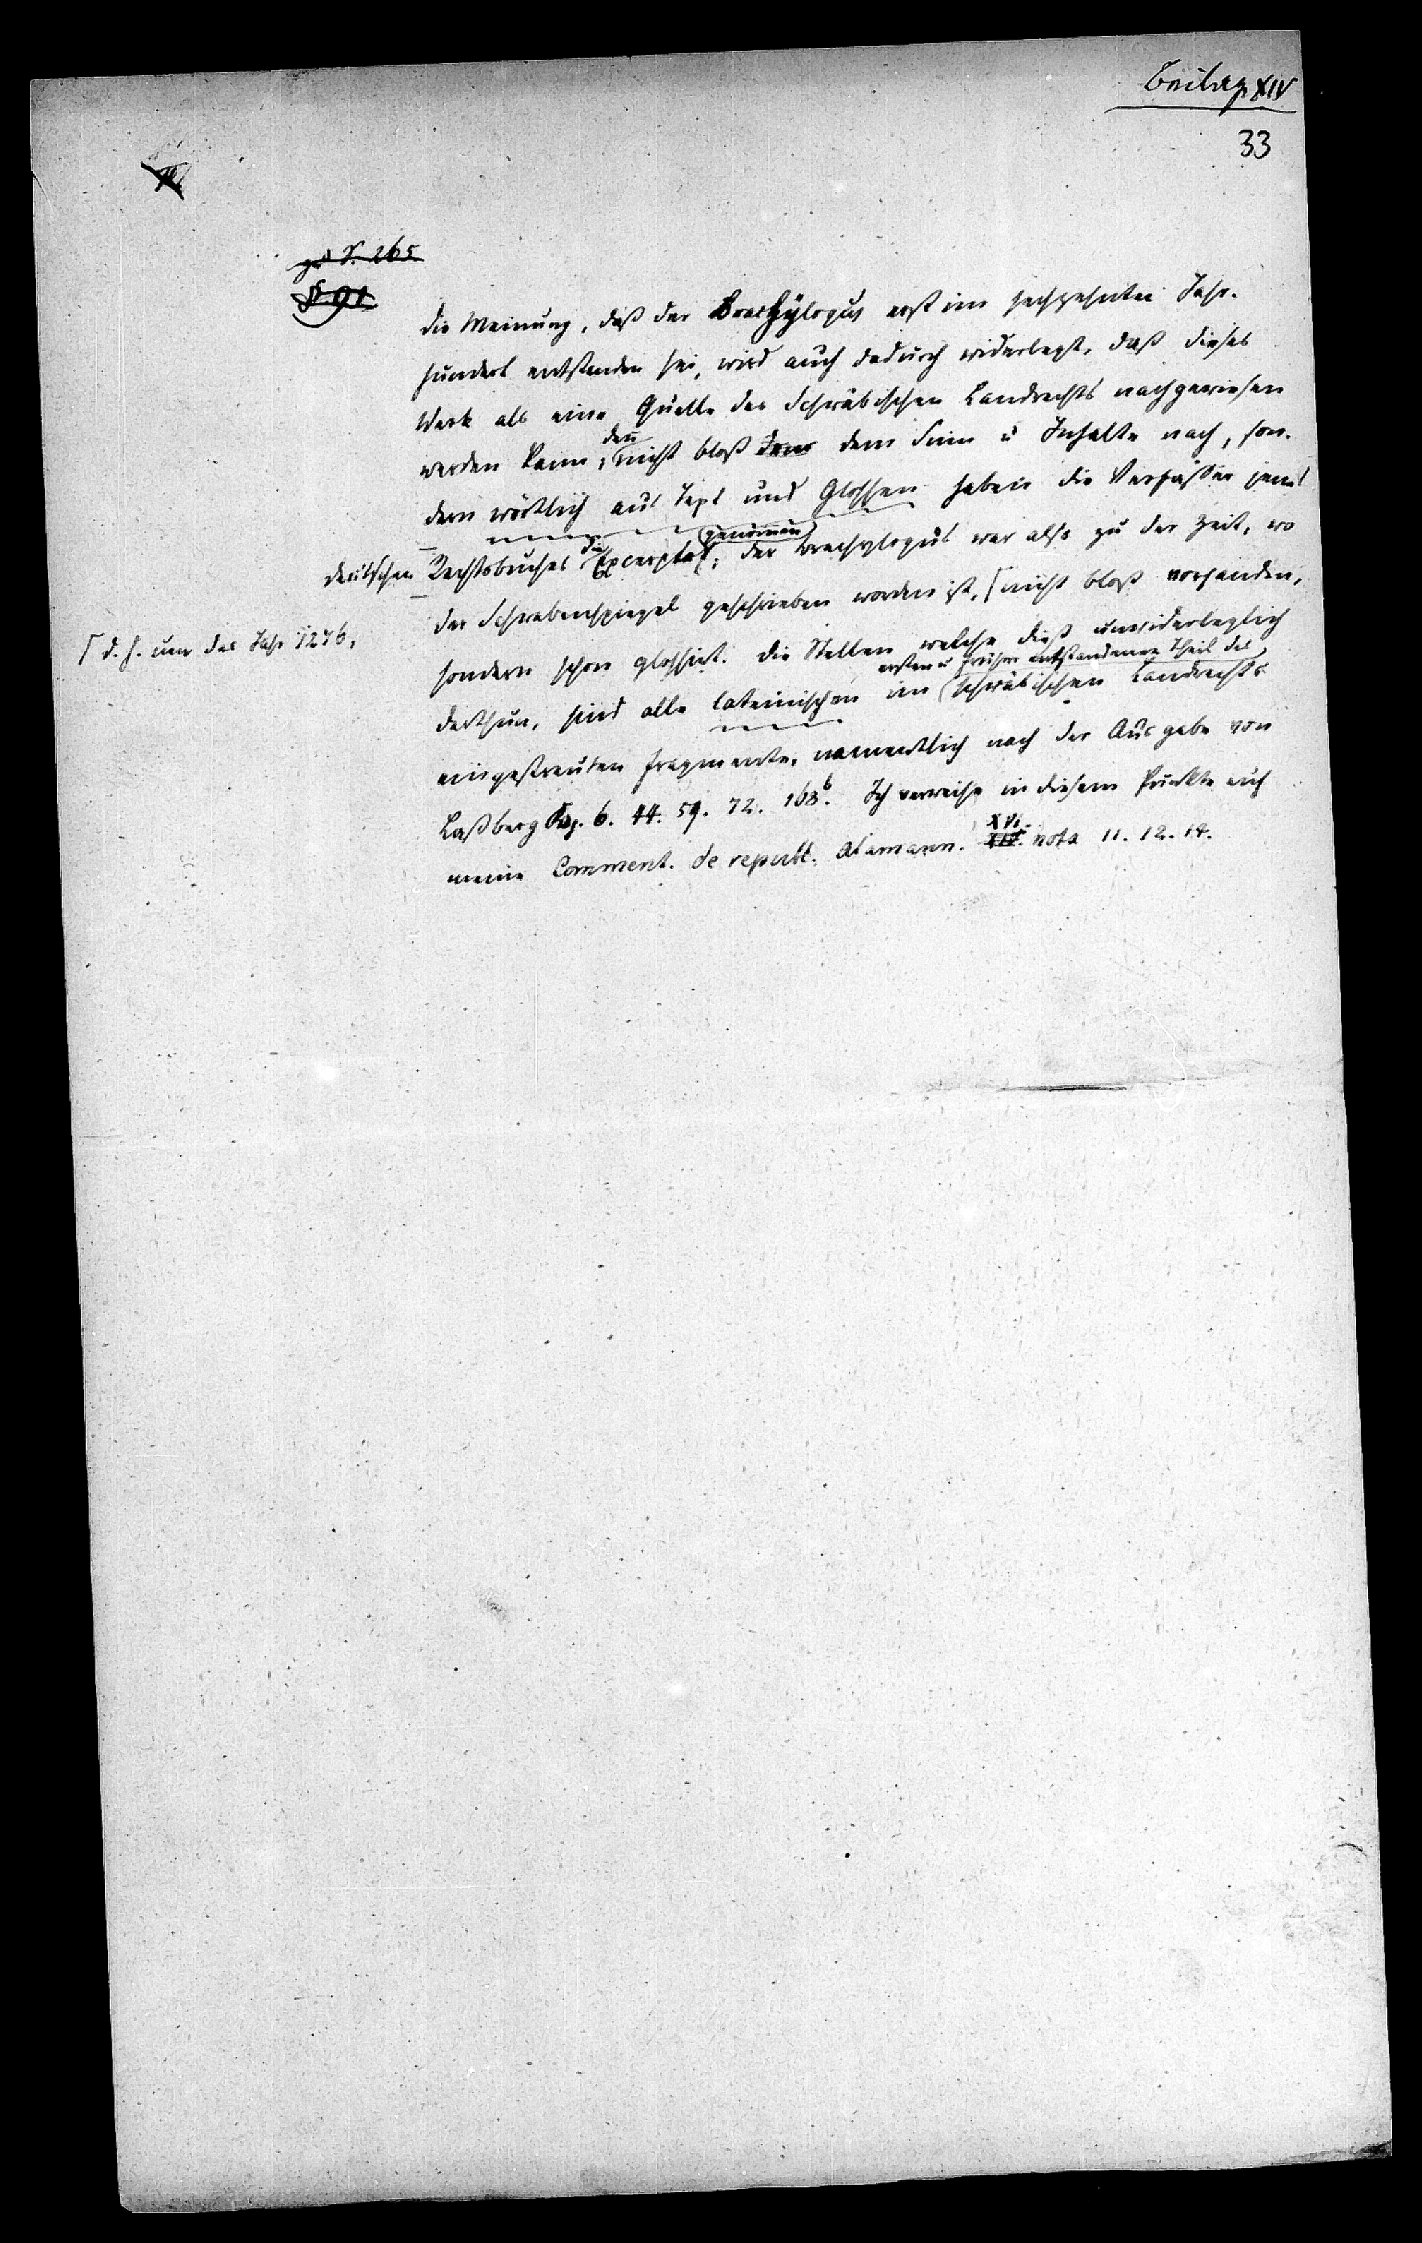 Beilage XIV
33
zu S. 265
S. 91
die Meinung, daß der Brachylogus erst im sechszehnten Jahr-
hundert entstanden sei, wird auch dadurch widerlegt, daß dieses
Werk als eine Quelle des Schwäbischen Landrechts nachgewiesen
werden kann; den nicht bloß dem Sinn u Inhalte nach, son-
dern wörtlich aus Text und Glossen haben die Verfasser jenes
deutschen Rechtsbuches die Excerpte genommen; der Brachylogus war also zu der Zeit, wo
der Schwabenspiegel geschrieben worden ist, ⌈ nicht bloß vorhanden,
⌈ d. h. um das Jahr 1276,
sondern schon glossirt. die Stellen welche dieß unwiderleglich
darthun, sind alle lateinischen im ersten u früher entstandenen Theil des schwäbischen Landrechts
eingestreuten Fragmente, namentlich nach der Ausgabe von
Laßberg Kap. 6. 44. 59. 72. 168.b Ich verweise in diesem Punkte auf
meine Comment. de republ. Alamann. XIV. XVI. nota 11. 12. 14.